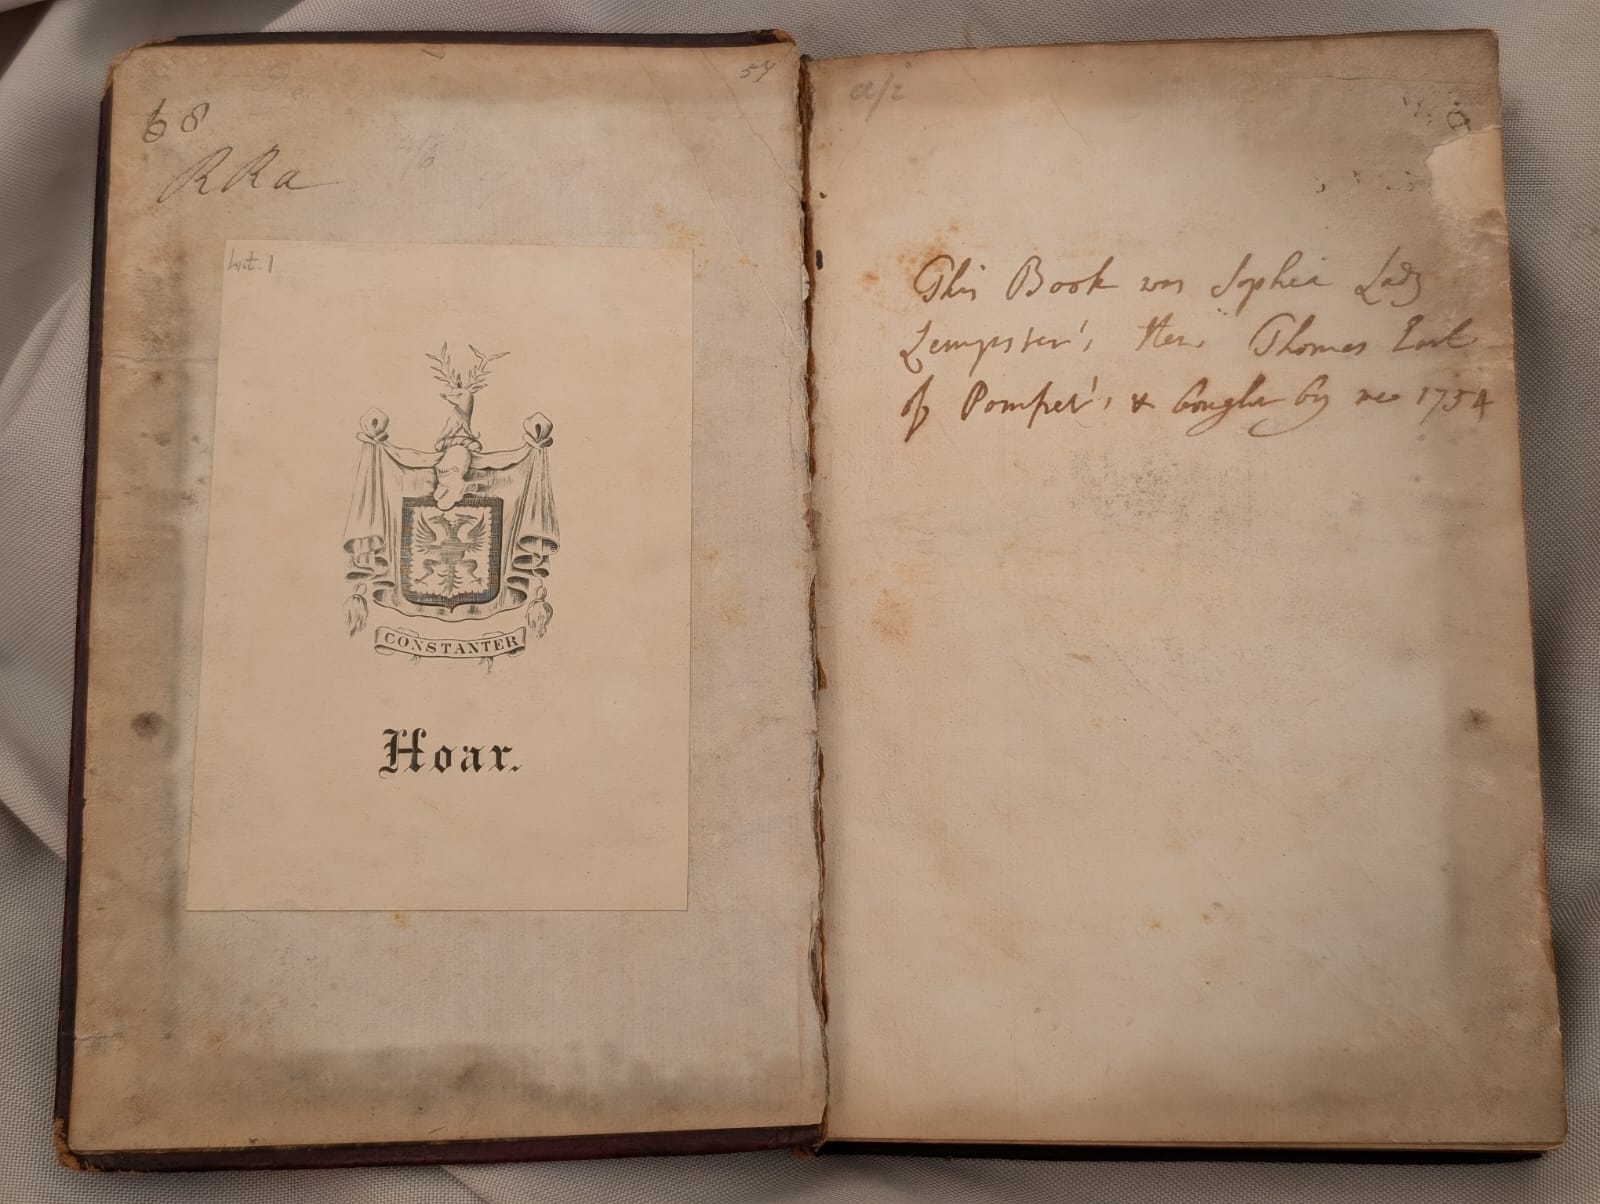 57
68
RRa
CONSTANTER
Hoar.
a/2
This Book was Sophia Lady
Lempster's then Thomas Earl
of Pomfret's & bought by me 1754